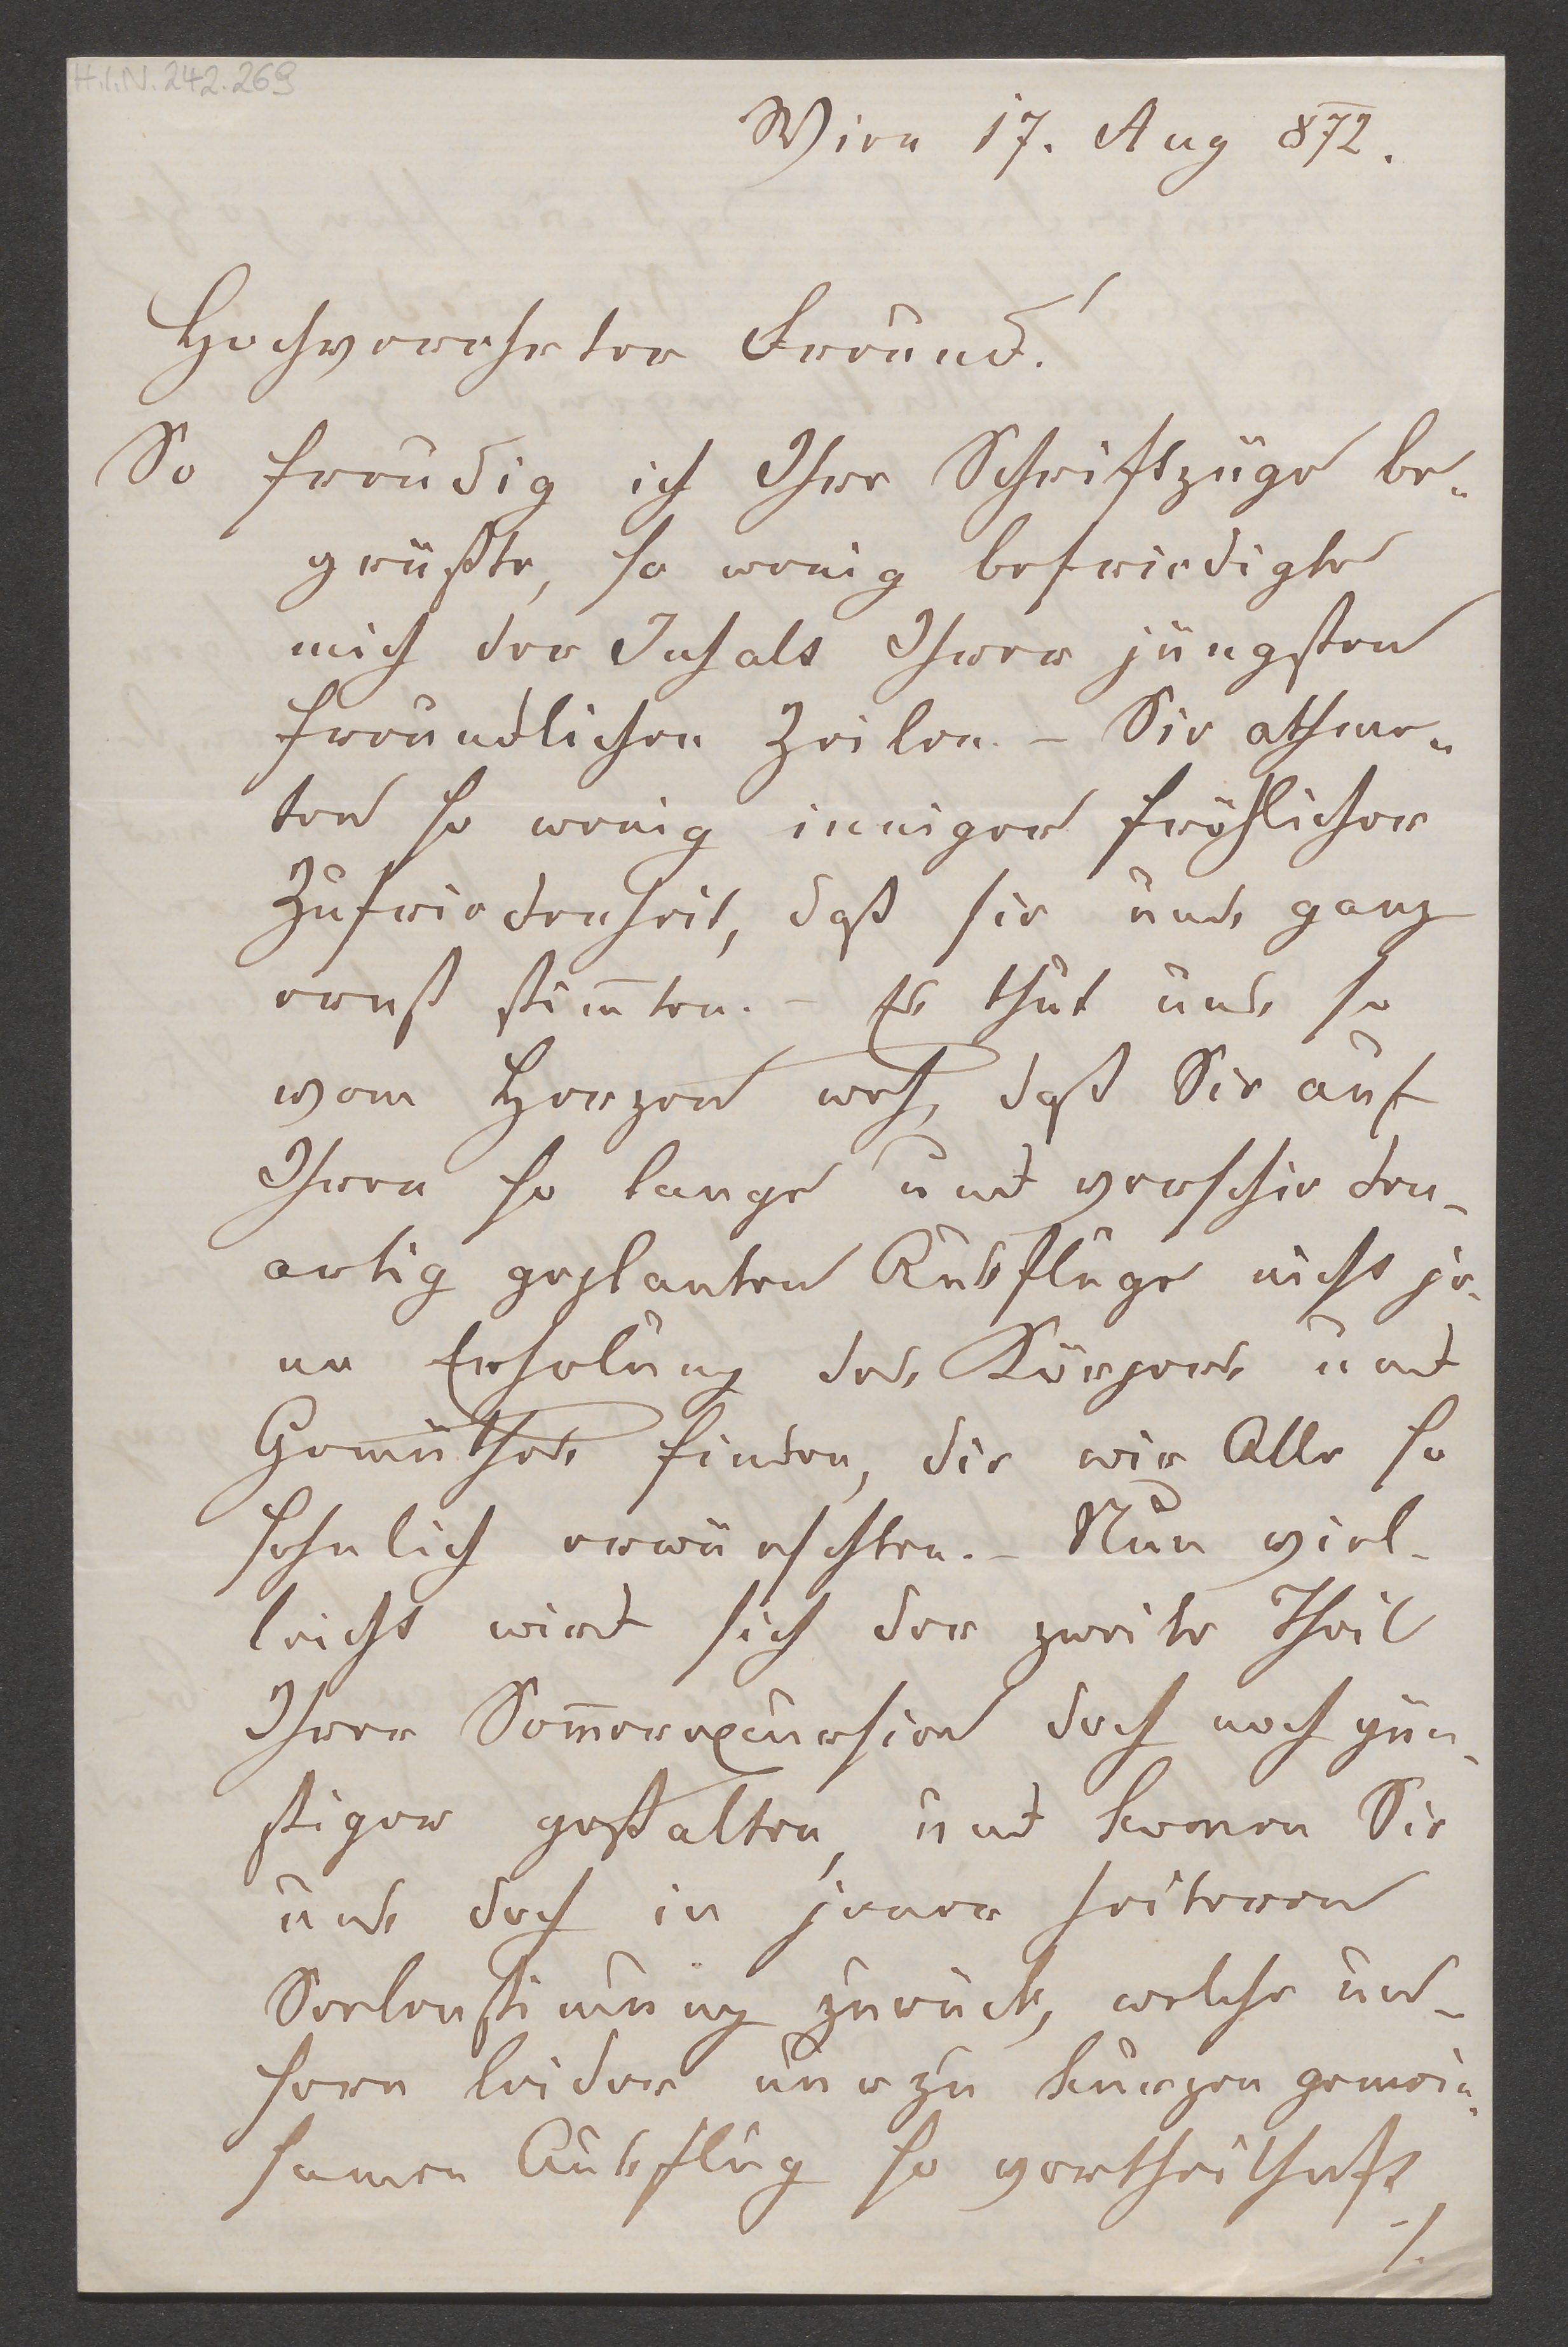 H.I.N. 242.269
Wien 17. Aug 872.
Hochverehrter Freund!
So freudig ich Ihre Schriftzüge be-
grüßte, so wenig befriedigte
mich der Inhalt Ihrer jüngsten
freundlichen Zeilen. – Sie athme-
ten so wenig inniger fröhlicher
Zufriedenheit, daß sie uns ganz
ernst stim̅ten. – Es thut uns so
vom Herzen weh, daß Sie auf
Ihren so lange und verschieden-
artig geplanten Ausfluge nicht je-
ne Erholung des Körpers und
Gemüthes finden, die wir Alle so
sehnlich erwünschten. – Nun viel-
leicht wird sich der zweite Theil
Ihrer Som̅erexcursion doch noch gün-
stiger gestalten, und kom̅en Sie
uns doch in jener heiteren
Seelenstim̅ung zurück, welche un-
sern leider nur zu kurzen gemein-
samen Ausflug so vortheilhaft
-/.